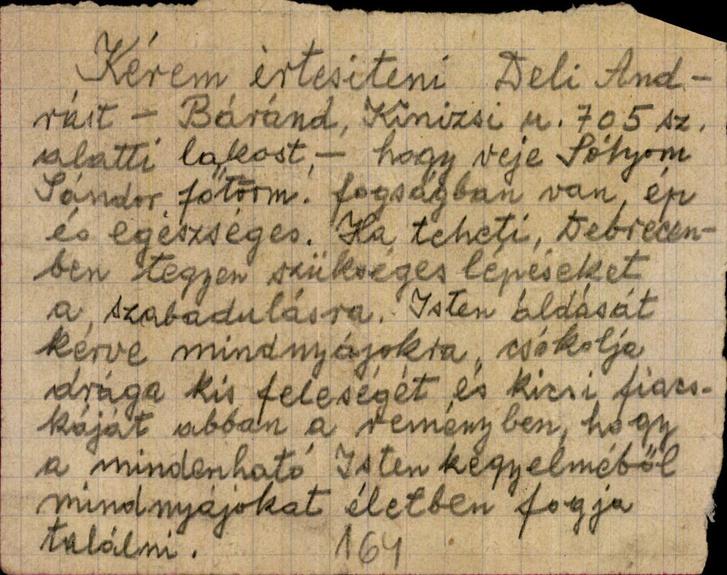 Kérem értesiteni Deli And-
rást - Báránd, Kinizsi u. 705 sz.
alatti lakost, - hogy veje Sólyom
Sándor főtörm. fogságban van, ép
és egészséges. Ha teheti, Debrecen-
ben tegyen szükséges lépéseket
a szabadulásra. Isten áldását
kérve mindnyájokra, csókolja
drága kis feleségét és kicsi fiacs-
káját abban a reményben, hogy
a mindenható Isten kegyelméből
mindnyájokat életben fogja
találni. 164